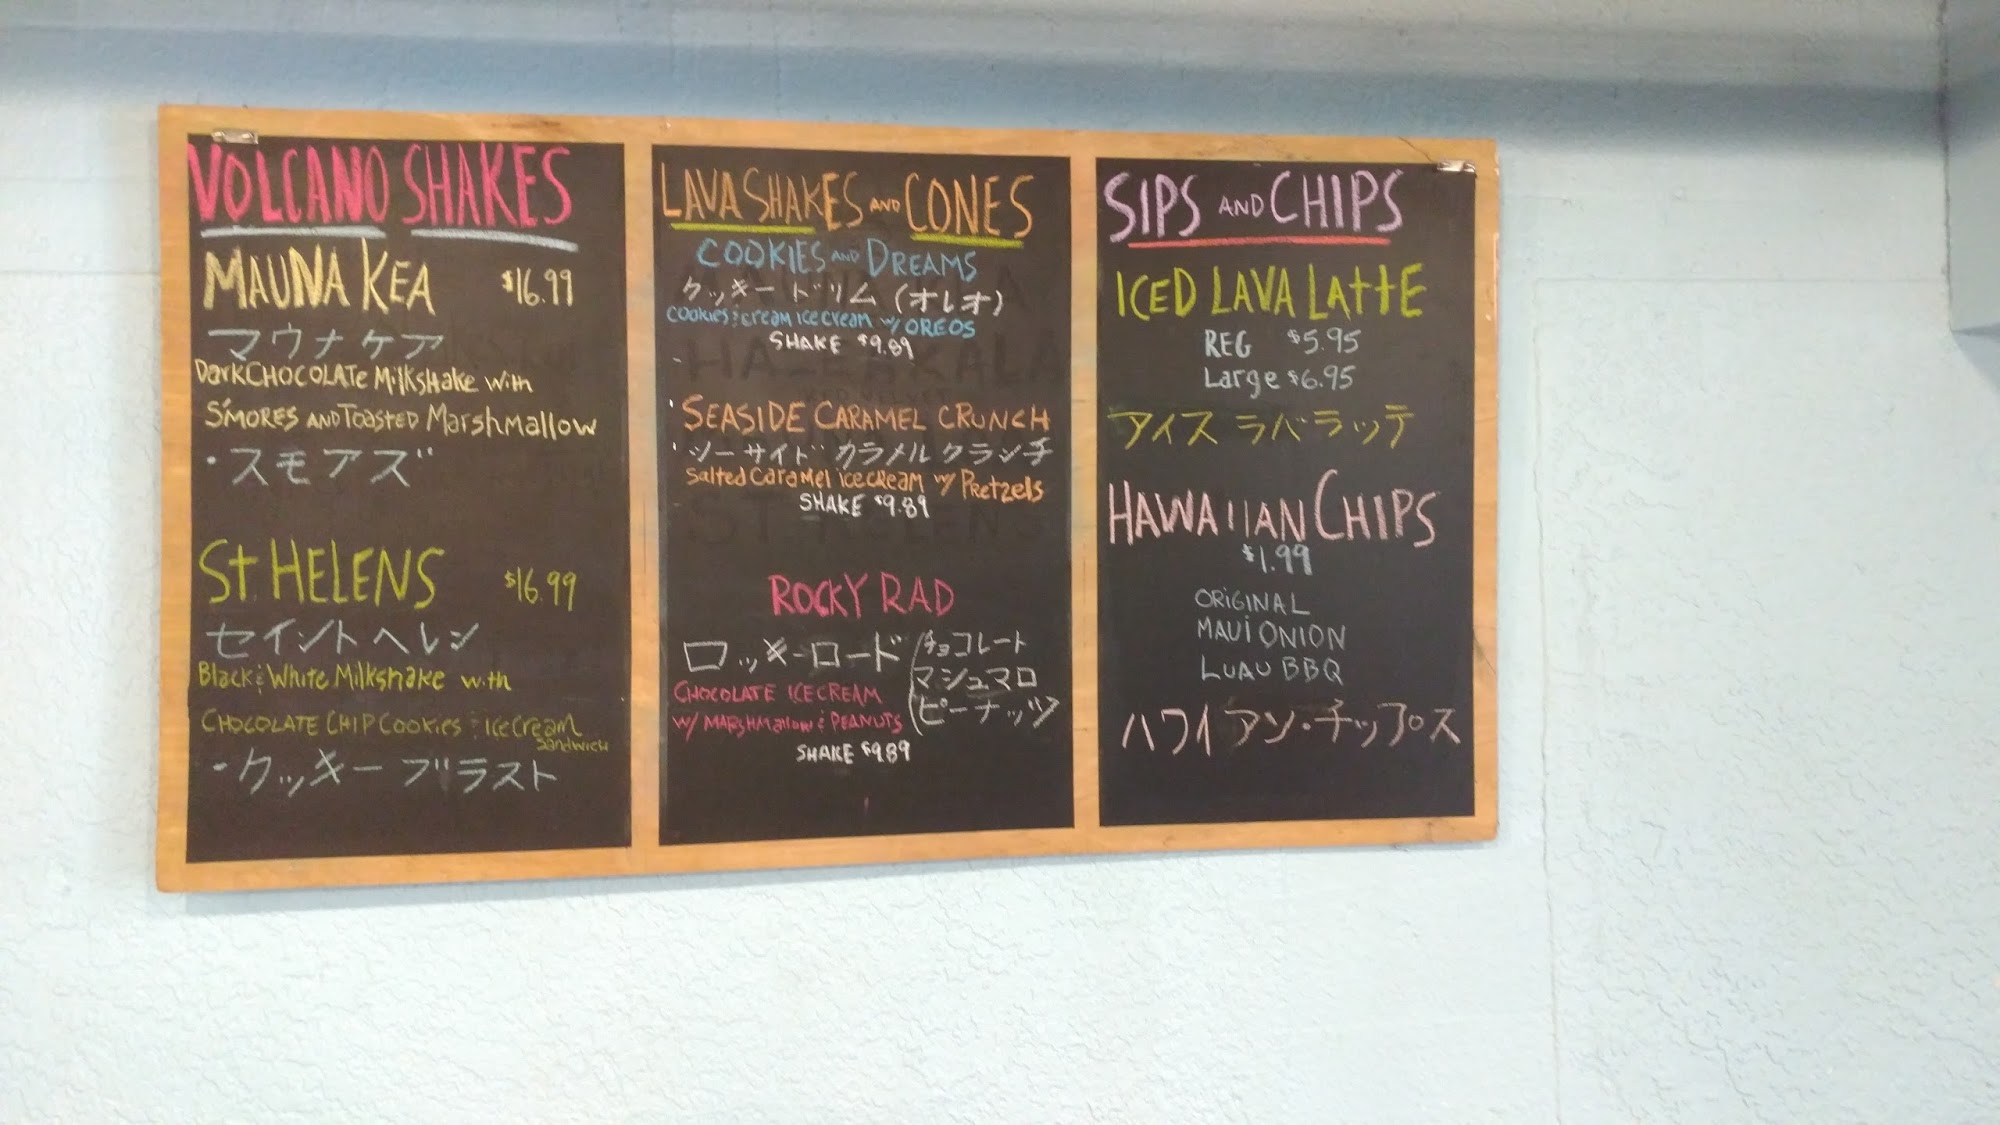 VOLCANO SHAKES
MAUNA KEA $16.99
マウナケア
DarkCHOCOLATE MilkSHake with
S'MORES AND TOASTED Marshmallow
・スモアズ
St HELENS $16.99
セイントヘレン
Black & White Milkshake with
CHOCOLATE CHIP COOKIES & Ice Cream
Sandwich
・クッキーブラスト
LAVA SHAKES AND CONES
COOKIES AND DREAMS
クッキードリム (オレオ)
Cookies & cream ice cream w/ OREOS
SHAKE $9.89
SEASIDE CARAMEL CRUNCH
シーサイド カラメルクランチ
Salted Caramel ice cream w/ Pretzels
SHAKE $9.89
ROCKY RAD
ロッキーロード
チョコレート
マシュマロ
ピーナッツ
CHOCOLATE ICE CREAM
W/ MARSHMallow & PEANUTS
SHAKE $9.89
SIPS AND CHIPS
ICED LAVA LAttE
REG $5.95
Large $6.95
アイス ラバ ラッテ
HAWAIIAN CHIPS
$1.99
ORIGINAL
MAUI ONION
LUAU BBQ
ハワイアン・チップス